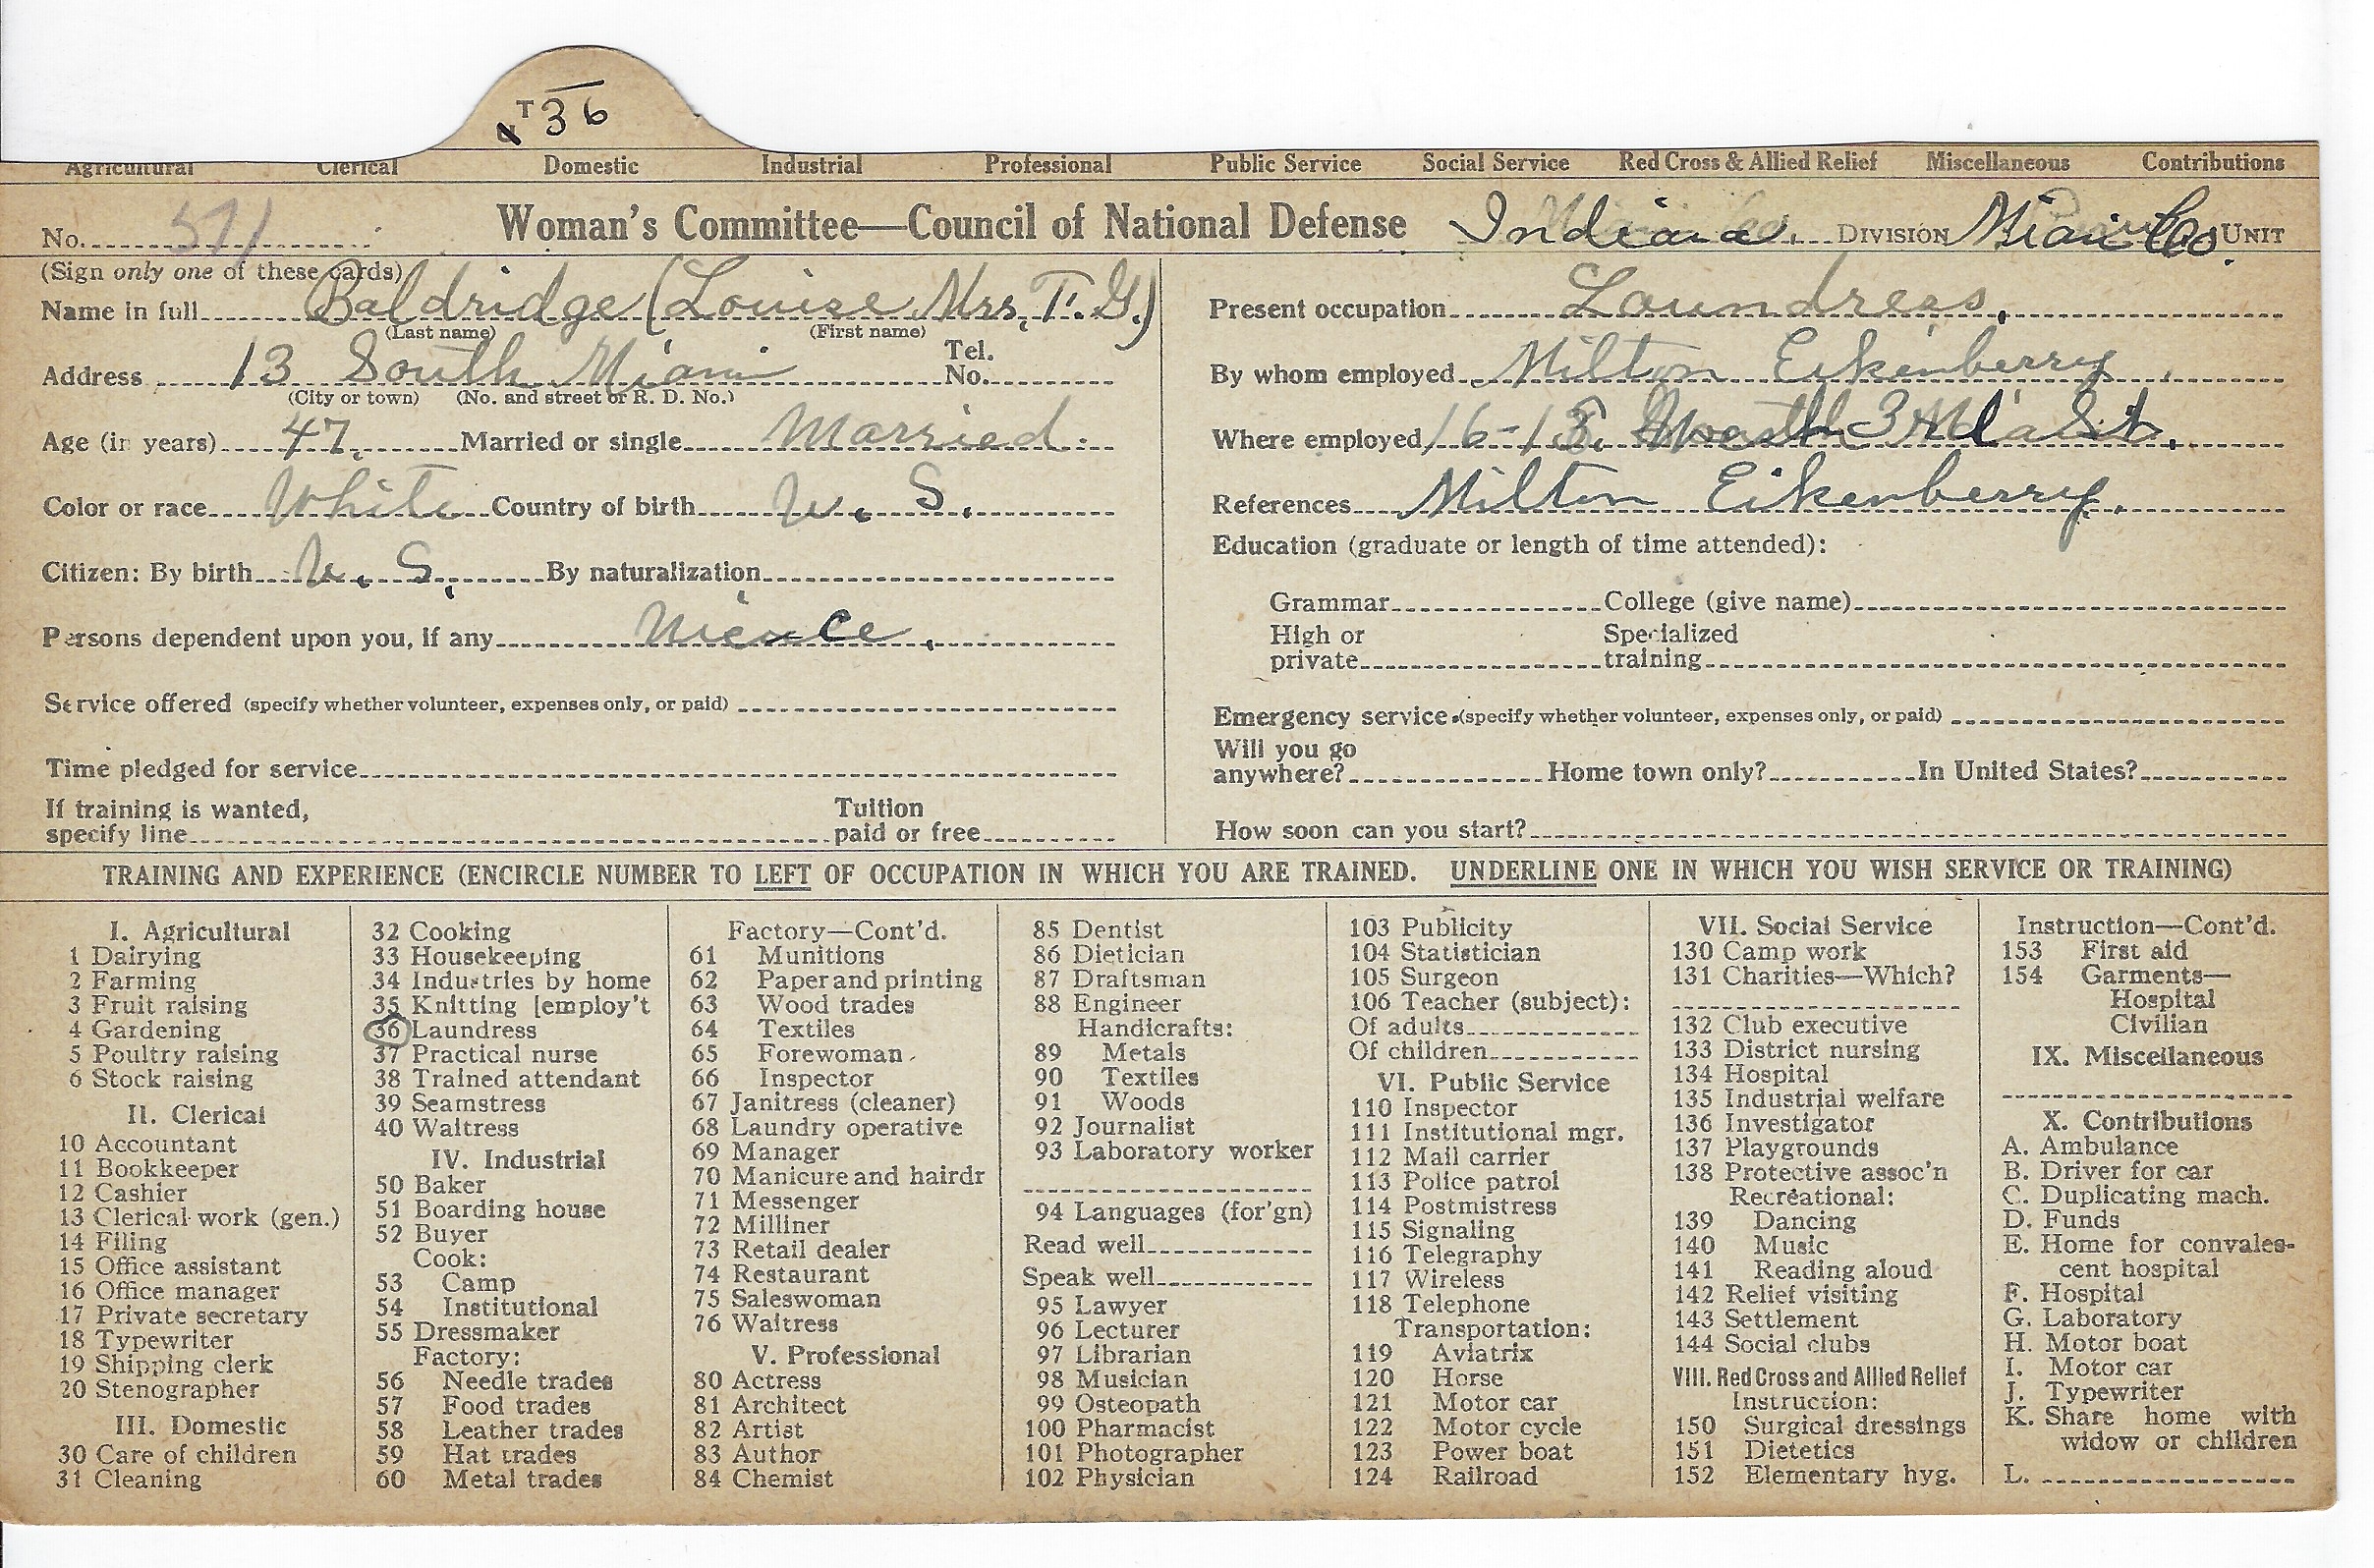 T 36
Agricultural Clerical Domestic Industrial Professional Public Service Social Service Red Cross & Allied Relief Miscellaneous Contributions
No. 571 Woman's Committee—Council of National Defense Indiana. DIVISION Miami Co. UNIT
(Sign only one of these cards)
Name in full Baldridge (Louise Mrs. T. G.)
(Last name) (First name)
Address 13 South Miami Tel. No.
(City or town) (No. and street or R. D. No.)
Age (in years) 47. Married or single Married.
Color or race White Country of birth U. S.
Citizen: By birth U. S. By naturalization
Persons dependent upon you, if any Niece.
Service offered (specify whether volunteer, expenses only, or paid)
Time pledged for service
If training is wanted,
specify line Tuition paid or free
Present occupation Laundress.
By whom employed Milton Eikenberry
Where employed 16-18 West 3rd St.
References Milton Eikenberry.
Education (graduate or length of time attended):
Grammar College (give name)
High or private Specialized training
Emergency service (specify whether volunteer, expenses only, or paid)
Will you go
anywhere? Home town only? In United States?
How soon can you start?
TRAINING AND EXPERIENCE (ENCIRCLE NUMBER TO LEFT OF OCCUPATION IN WHICH YOU ARE TRAINED. UNDERLINE ONE IN WHICH YOU WISH SERVICE OR TRAINING)
I. Agricultural
1 Dairying
2 Farming
3 Fruit raising
4 Gardening
5 Poultry raising
6 Stock raising
II. Clerical
10 Accountant
11 Bookkeeper
12 Cashier
13 Clerical work (gen.)
14 Filing
15 Office assistant
16 Office manager
17 Private secretary
18 Typewriter
19 Shipping clerk
20 Stenographer
III. Domestic
30 Care of children
31 Cleaning
32 Cooking
33 Housekeeping
34 Industries by home
35 Knitting [employ't
36 Laundress
37 Practical nurse
38 Trained attendant
39 Seamstress
40 Waitress
IV. Industrial
50 Baker
51 Boarding house
52 Buyer
Cook:
53 Camp
54 Institutional
55 Dressmaker
Factory:
56 Needle trades
57 Food trades
58 Leather trades
59 Hat trades
60 Metal trades
Factory—Cont'd.
61 Munitions
62 Paper and printing
63 Wood trades
64 Textiles
65 Forewoman
66 Inspector
67 Janitress (cleaner)
68 Laundry operative
69 Manager
70 Manicure and hairdr
71 Messenger
72 Milliner
73 Retail dealer
74 Restaurant
75 Saleswoman
76 Waitress
V. Professional
80 Actress
81 Architect
82 Artist
83 Author
84 Chemist
85 Dentist
86 Dietician
87 Draftsman
88 Engineer
Handicrafts:
89 Metals
90 Textiles
91 Woods
92 Journalist
93 Laboratory worker
94 Languages (for'gn)
Read well
Speak well
95 Lawyer
96 Lecturer
97 Librarian
98 Musician
99 Osteopath
100 Pharmacist
101 Photographer
102 Physician
103 Publicity
104 Statistician
105 Surgeon
106 Teacher (subject):
Of adults
Of children
VI. Public Service
110 Inspector
111 Institutional mgr.
112 Mail carrier
113 Police patrol
114 Postmistress
115 Signaling
116 Telegraphy
117 Wireless
118 Telephone
Transportation:
119 Aviatrix
120 Horse
121 Motor car
122 Motor cycle
123 Power boat
124 Railroad
VII. Social Service
130 Camp work
131 Charities—Which?
132 Club executive
133 District nursing
134 Hospital
135 Industrial welfare
136 Investigator
137 Playgrounds
138 Protective assoc'n
Recreational:
139 Dancing
140 Music
141 Reading aloud
142 Relief visiting
143 Settlement
144 Social clubs
VIII. Red Cross and Allied Relief
Instruction:
150 Surgical dressings
151 Dietetics
152 Elementary hyg.
Instruction—Cont'd.
153 First aid
154 Garments—
Hospital
Civilian
IX. Miscellaneous
X. Contributions
A. Ambulance
B. Driver for car
C. Duplicating mach.
D. Funds
E. Home for convales-
cent hospital
F. Hospital
G. Laboratory
H. Motor boat
I. Motor car
J. Typewriter
K. Share home with
widow or children
L.